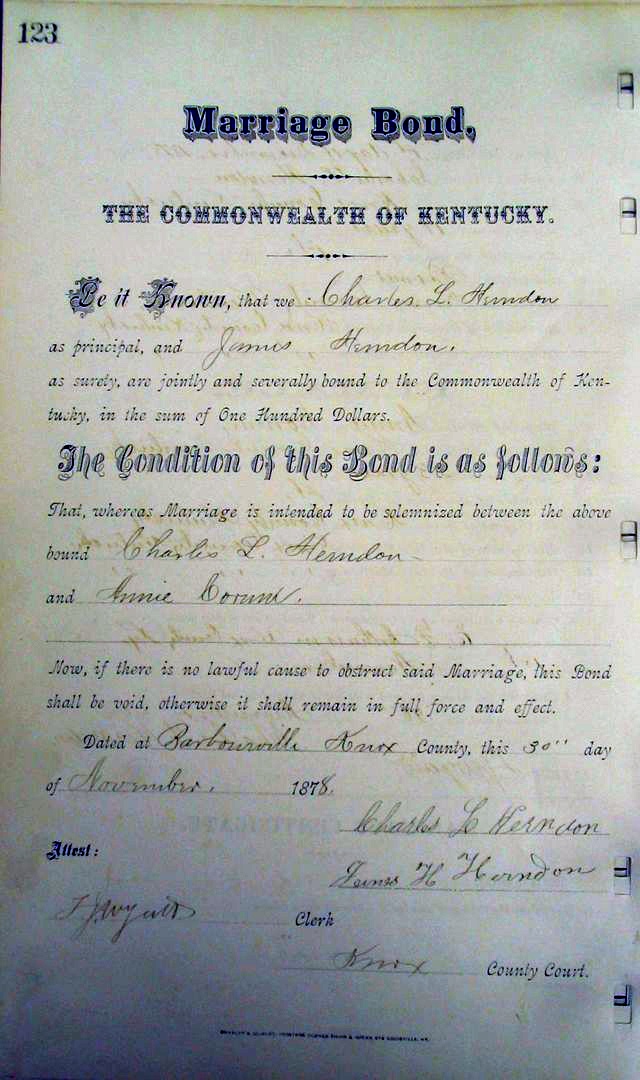 123
Marriage Bond,
THE COMMONWEALTH OF KENTUCKY.
Be it Known, that we Charles L. Herndon
as principal, and James Herndon.
as surety, are jointly and severally bound to the Commonwealth of Ken-
tucky, in the sum of One Hundred Dollars.
The Condition of this Bond is as follows:
That, whereas Marriage is intended to be solemnized between the above
bound Charles L. Herndon
and Annie Corum.
Now, if there is no lawful cause to obstruct said Marriage, this Bond
shall be void, otherwise it shall remain in full force and effect.
Dated at Barbourville Knox County, this 30" day
of November. 1878.
Charles L Herndon
Attest:
H Herndon
Clerk
Knox County Court.